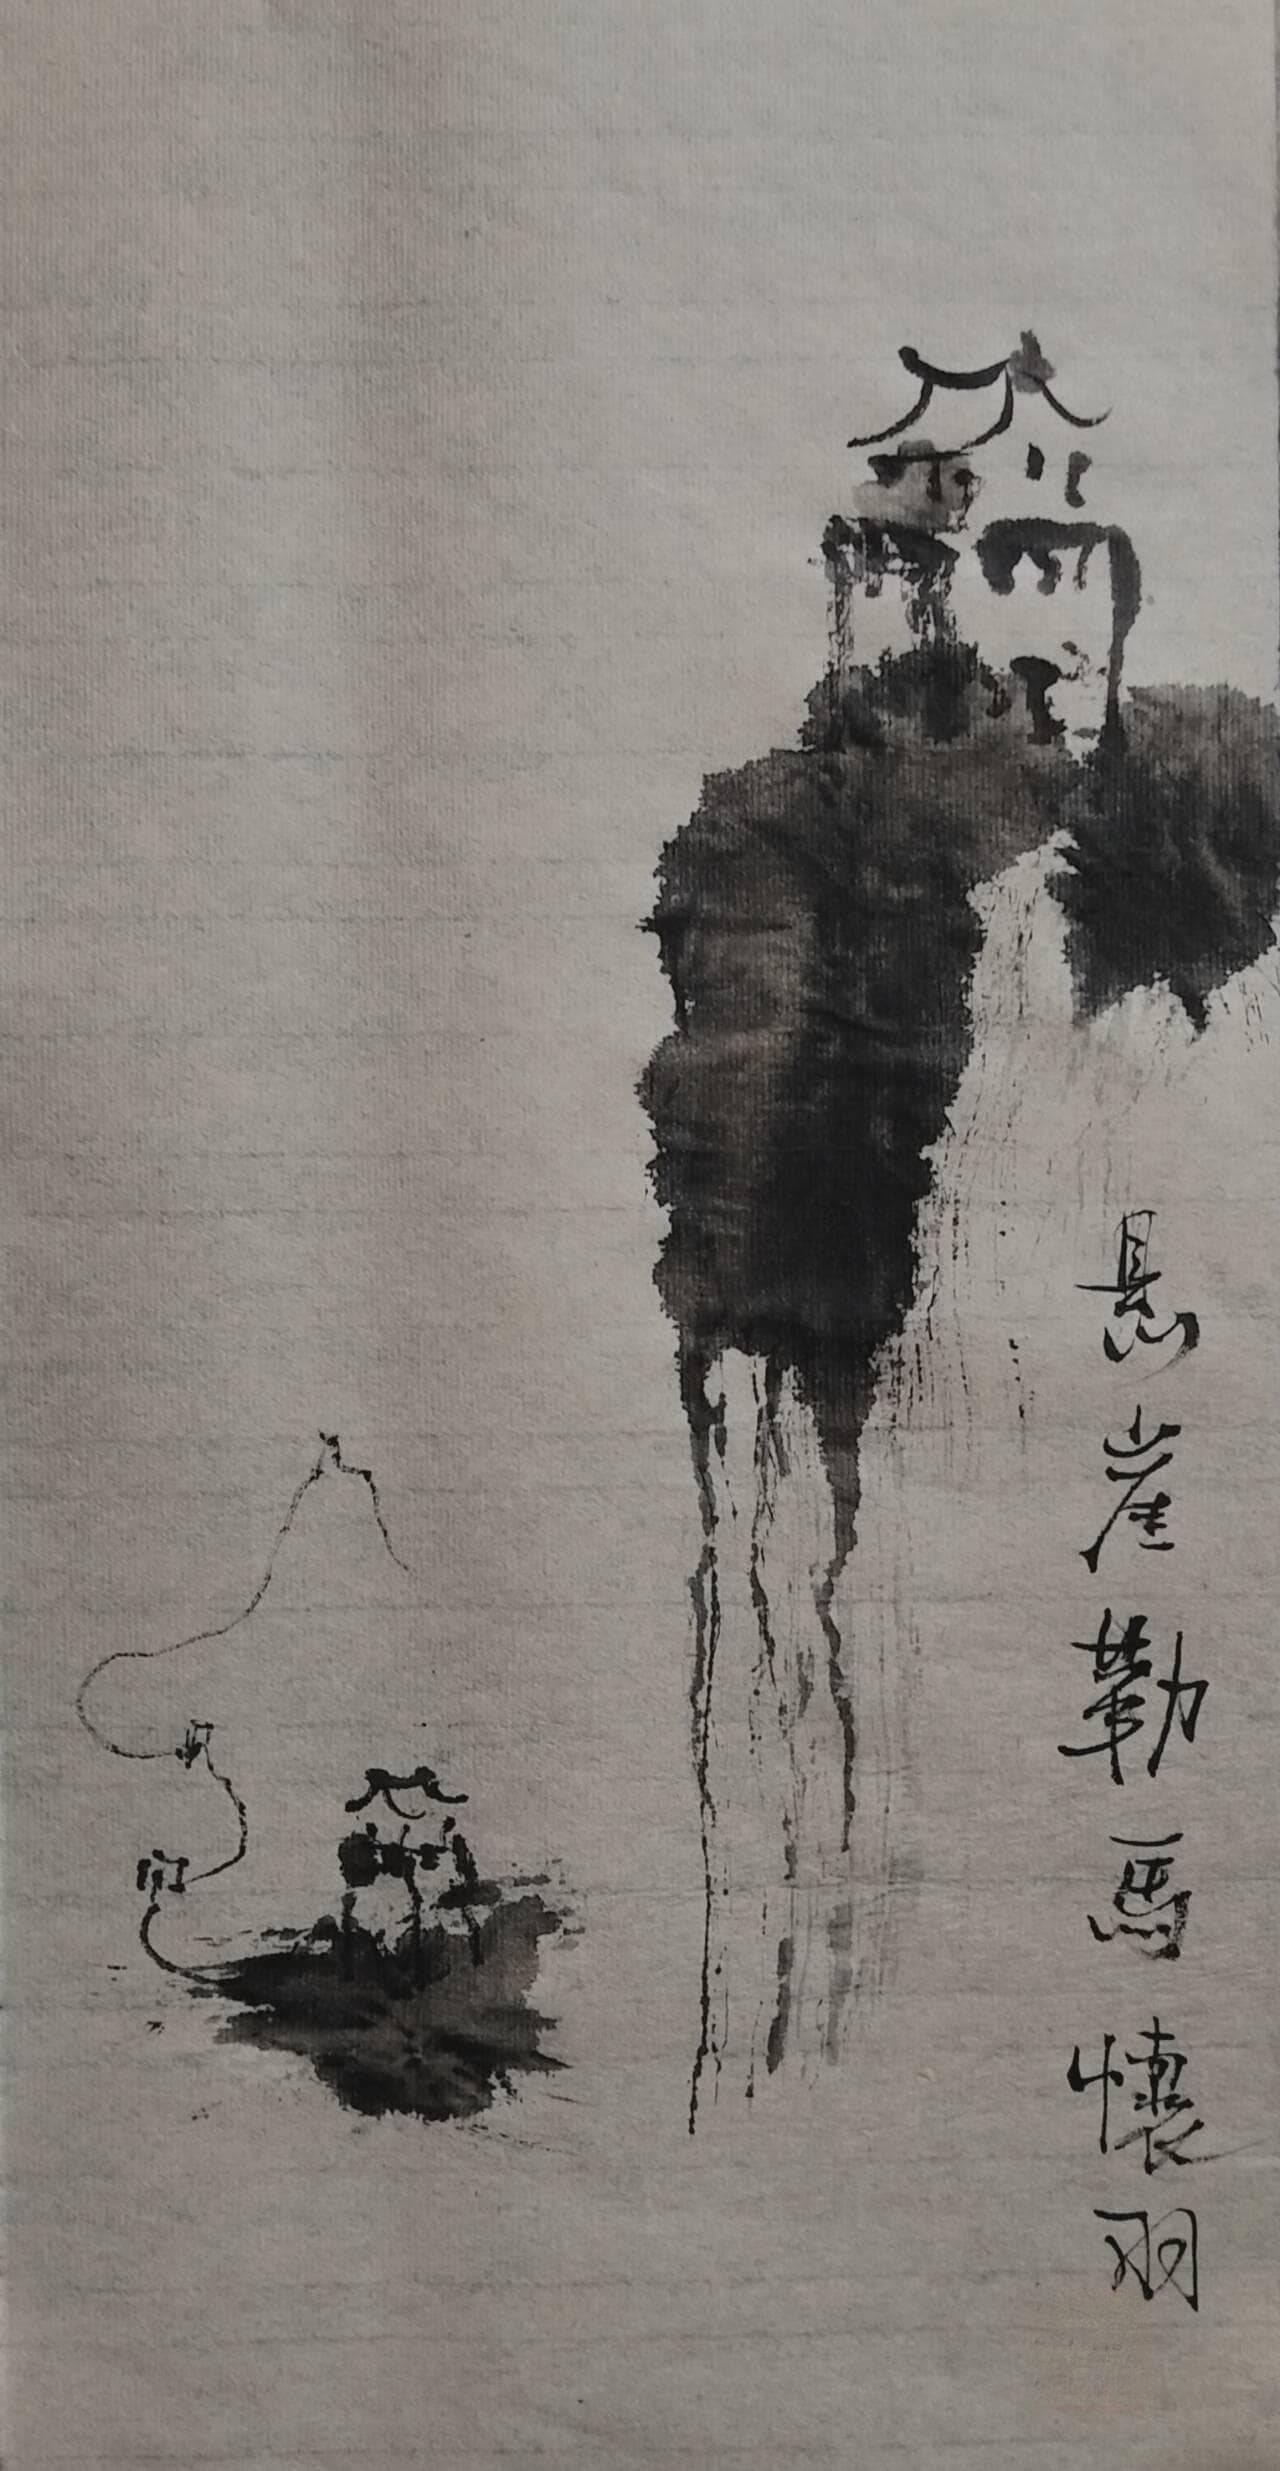 悬崖勒馬懷羽